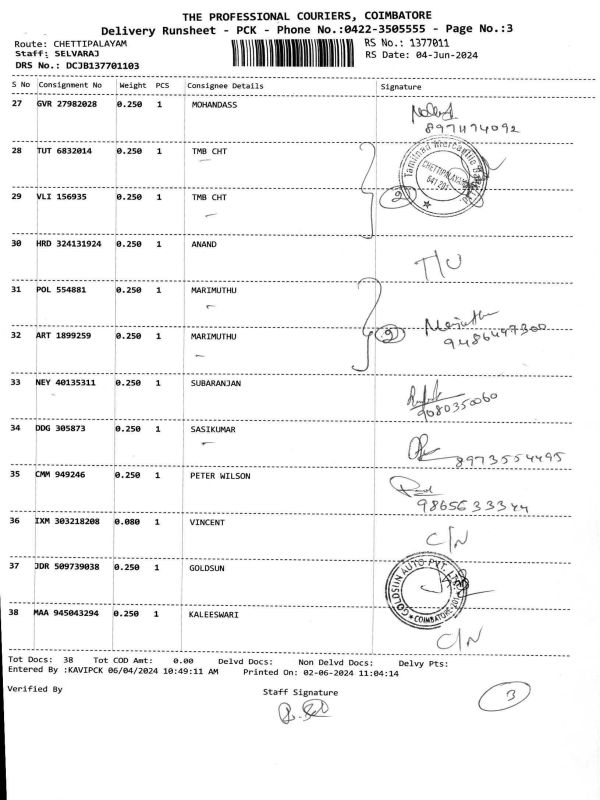 THE PROFESSIONAL COURIERS, COIMBATORE
Delivery Runsheet - PCK - Phone No.:0422-3505555 - Page No.:3
Route: CHETTIPALAYAM RS No.: 1377011
Staff: SELVARAJ RS Date: 04-Jun-2024
DRS No.: DCJB137701103
S No Consignment No Weight PCS Consignee Details Signature
27 GVR 27982028 0.250 1 MOHANDASS
8971174092
28 TUT 6832014 0.250 1 TMB CHT
Tamilnad Mercantile
CHETTIPALAYAM
641 201
29 VLI 156935 0.250 1 TMB CHT 2
30 HRD 324131924 0.250 1 ANAND
T/U
31 POL 554881 0.250 1 MARIMUTHU
32 ART 1899259 0.250 1 MARIMUTHU 2
9486497300
33 NEY 40135311 0.250 1 SUBARANJAN
9080350060
34 DDG 305873 0.250 1 SASIKUMAR
8973554495
35 CMM 949246 0.250 1 PETER WILSON
9865633344
36 IXM 303218208 0.080 1 VINCENT
C/N
37 JDR 509739038 0.250 1 GOLDSUN
GOLDSUN AUTO PVT. LTD
COIMBATORE
38 MAA 945043294 0.250 1 KALEESWARI
C/N
Tot Docs: 38 Tot COD Amt: 0.00 Delvd Docs: Non Delvd Docs: Delvy Pts:
Entered By :KAVIPCK 06/04/2024 10:49:11 AM Printed On: 02-06-2024 11:04:14
Verified By Staff Signature 3